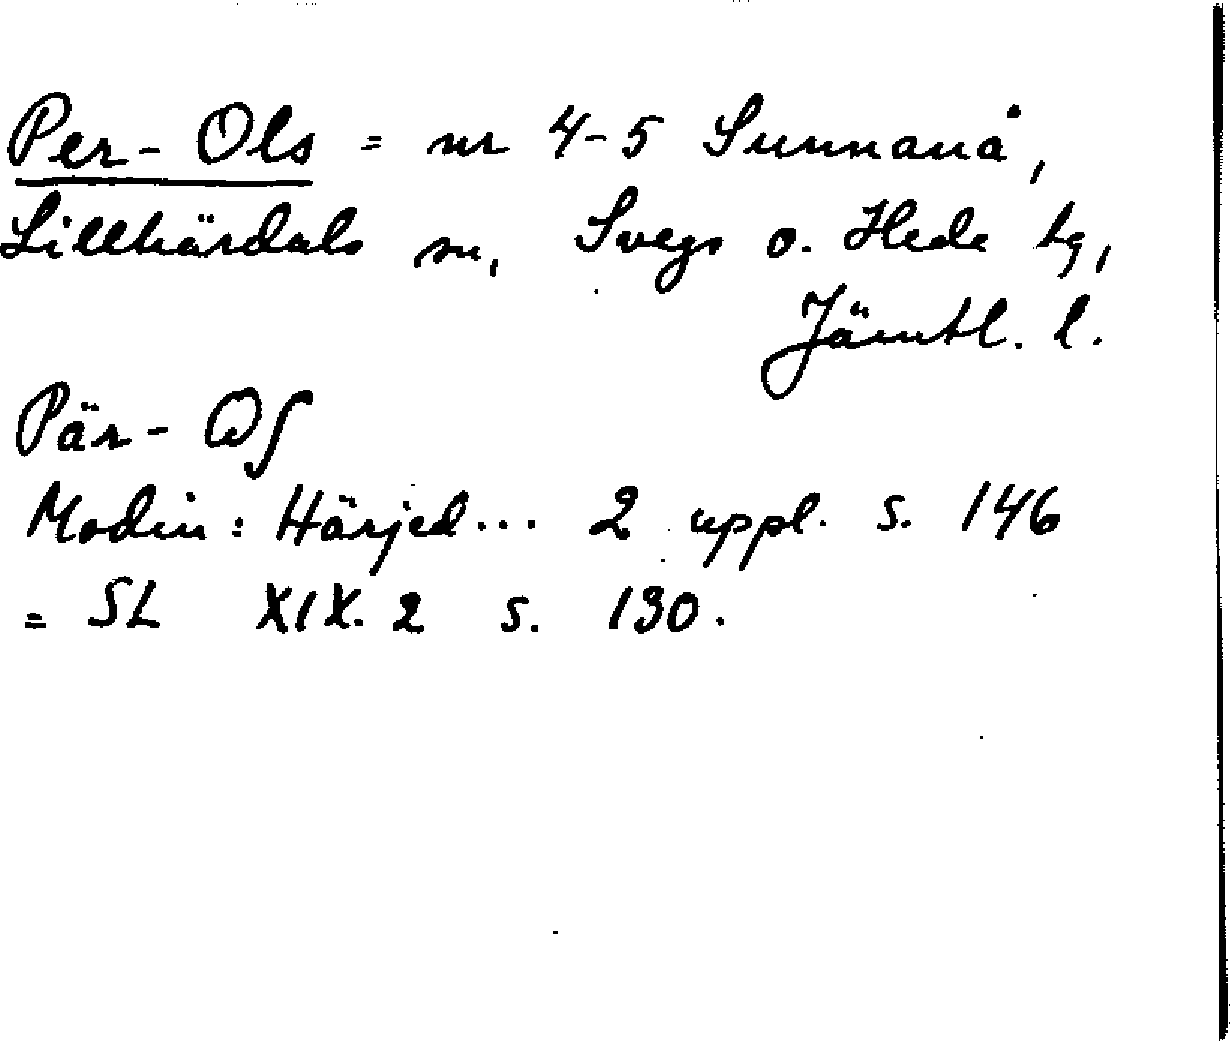 Per-Ols = nr 4-5 Sunnanå,
Lillhärdals sn, Svegs o. Hede tg,
Jämtl. l.
Pär-Ols
Modin: Härjed... 2 uppl. s. 146
= SL XIX.2 s. 130.